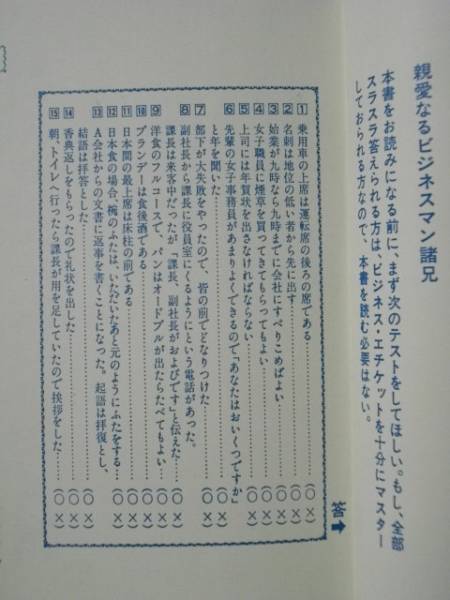 親愛なるビジネスマン諸兄
本書をお読みになる前に、まず次のテストをしてほしい。もし、全部
スラスラ答えられる方は、ビジネス・エチケットを十分にマスター
しておられる方なので、本書を読む必要はない。
答➡
1 乗用車の上席は運転席の後ろの席である……………(○ ×)
2 名刺は地位の低い者から先に出す……………(○ ×)
3 始業が九時なら九時までに会社にすべりこめばよい……………(○ ×)
4 女子職員に煙草を買ってきてもらってもよい……………(○ ×)
5 上司には年賀状を出さなければならない……………(○ ×)
6 先輩の女子事務員があまりよくできるので「あなたはおいくつですか」
と年を聞いた……………(○ ×)
7 部下が大失敗をやったので、皆の前でどなりつけた……………(○ ×)
8 副社長から課長に役員室にくるようにという電話があった。
課長は来客中だったが「課長、副社長がおよびです」と伝えた……(○ ×)
9 洋食のフルコースで、パンはオードブルが出たらたべてもよい……(○ ×)
10 ブランデーは食後酒である……………(○ ×)
11 日本間の最上席は床柱の前である……………(○ ×)
12 日本食の場合、椀のふたは、いただいたあと元のようにふたをする……(○ ×)
13 A会社からの文書に返事を書くことになった。起語は拝復とし、
結語は拝答とした……………(○ ×)
14 香典返しをもらったので礼状を出した……………(○ ×)
15 朝、トイレへ行ったら課長が用を足していたので挨拶をした……(○ ×)